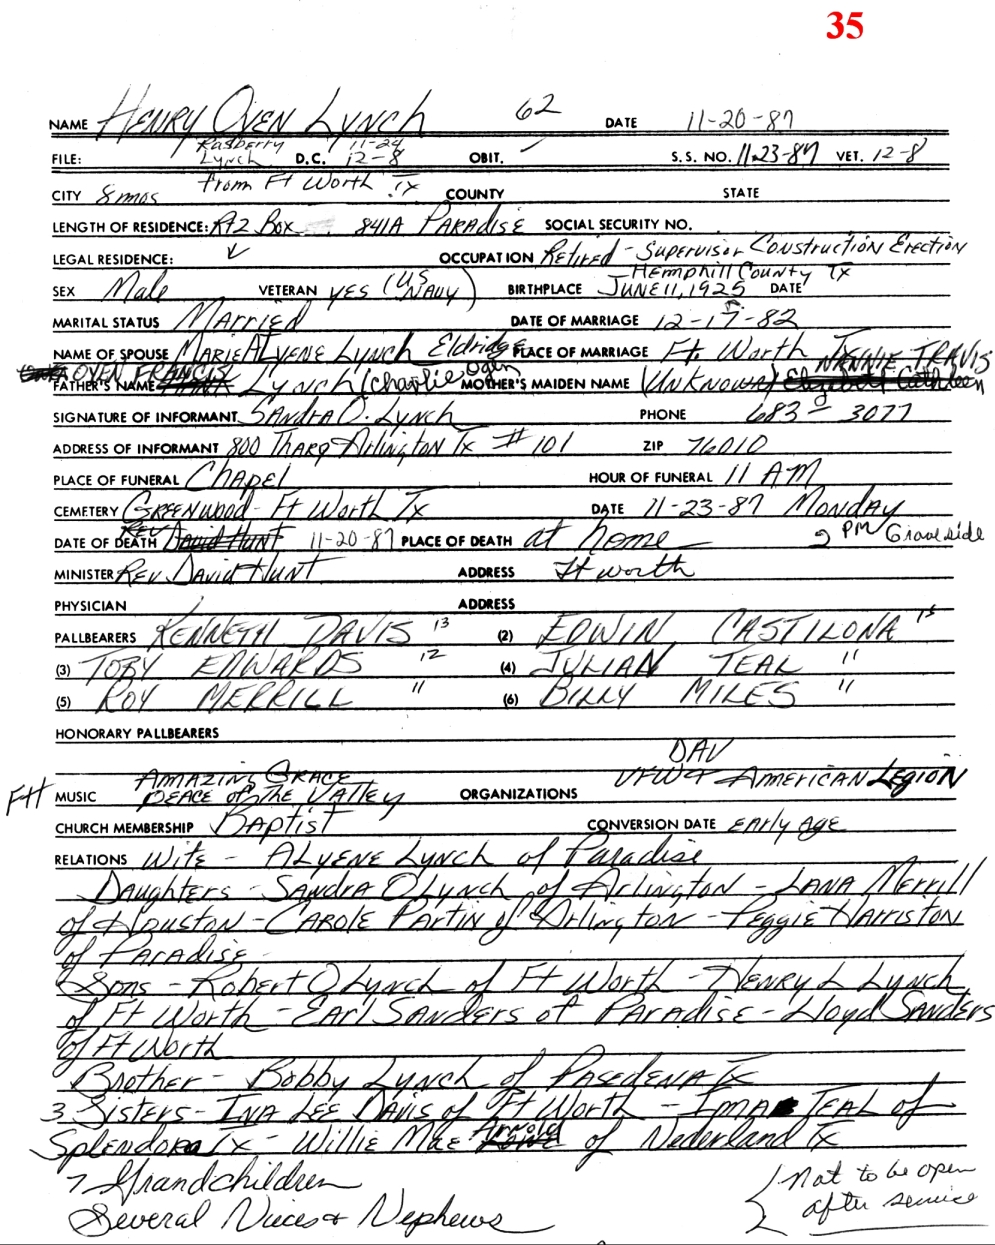 35
NAME HENRY OVEN LYNCH 62 DATE 11-20-87
Rasberry 11-24
FILE: Lynch D.C. 12-8 OBIT. S.S. NO. 11-23-87 VET. 12-8
CITY 8 mos from Ft Worth Tx COUNTY STATE
LENGTH OF RESIDENCE: Rt2 Box 841A PARADISE SOCIAL SECURITY NO.
LEGAL RESIDENCE: ✓ OCCUPATION Retired - Supervisor Construction Erection
Hemphill County Tx
SEX Male VETERAN yes (US Navy) BIRTHPLACE JUNE 11, 1925 DATE
MARITAL STATUS Married DATE OF MARRIAGE 12-17-82
NAME OF SPOUSE MARIE ALVENE Lynch Eldridge PLACE OF MARRIAGE Ft. Worth
OVEN FRANCIS NANNIE TRAVIS
FATHER'S NAME Lynch (Charlie Ogin MOTHER'S MAIDEN NAME (Unknown) Elizabeth Cathleen
SIGNATURE OF INFORMANT SANdRA O. Lynch PHONE 683-3077
ADDRESS OF INFORMANT 800 Tharp Arlington Tx #101 ZIP 76010
PLACE OF FUNERAL Chapel HOUR OF FUNERAL 11 AM
CEMETERY GREENWOOD - Ft Worth Tx DATE 11-23-87 Monday
DATE OF DEATH Rev David Hunt 11-20-87 PLACE OF DEATH at home 2 PM Graveside
MINISTER Rev. David Hunt ADDRESS Ft worth
PHYSICIAN ADDRESS
PALLBEARERS KENNETH DAVIS 13 (2) EDWIN CASTILONA 15
(3) TOBY EDWARDS 12 (4) JULIAN TEAL "
(5) ROY MERRILL " (6) BILLY MILES "
HONORARY PALLBEARERS
DAV
AMAZING GRACE VFW & AMERICAN LEGION
FH MUSIC PEACE of The VALLEY ORGANIZATIONS
CHURCH MEMBERSHIP Baptist CONVERSION DATE EARLY AGE
RELATIONS Wife - ALVENE Lynch of Paradise
Daughters - SANdRA O Lynch of Arlington - LANA Merrill
of Houston - CAROLE Partin of Arlington - Peggie Harriston
of PARADISE -
Sons - Robert O Lynch of Ft Worth - Henry L Lynch
of Ft Worth - Earl SANDERS of PARADISE - Lloyd SANDERS
of Ft Worth
Brother - Bobby Lynch of PASEDENA Tx
3 Sisters - INA LEE DAVIS of Ft Worth - IMA TEAL of
Splendora Tx - Willie Mae Arnold of Nederland Tx
7 Grandchildren
Several Nieces & Nephews
Not to be open
after service